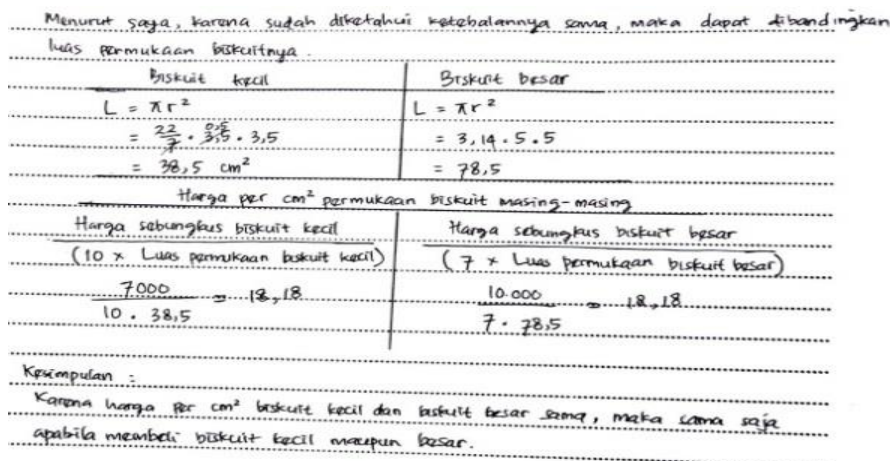 Menurut saya, karena sudah diketahui ketebalannya sama, maka dapat dibandingkan
luas permukaan biskuitnya.
Biskuit kecil Biskuit besar
L = πr² L = πr²
= 22/7 . 3,5 0,5 . 3,5 = 3,14 . 5 . 5
= 38,5 cm² = 78,5
Harga per cm² permukaan biskuit masing-masing
Harga sebungkus biskuit kecil Harga sebungkus biskuit besar
(10 × Luas permukaan biskuit kecil) (7 × Luas permukaan biskuit besar)
7000 / 10 . 38,5 = 18,18 10.000 / 7 . 78,5 = 18,18
Kesimpulan :
Karena harga per cm² biskuit kecil dan biskuit besar sama, maka sama saja
apabila membeli biskuit kecil maupun besar.